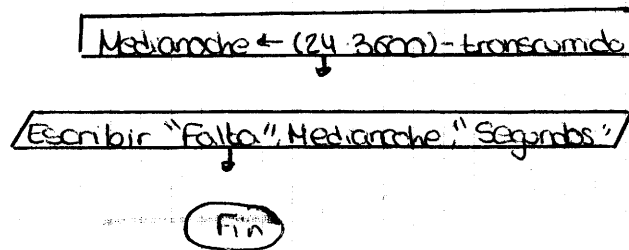 Medianoche ← (24·3600) - transcurrido
Escribir "Falta", Medianoche, "Segundos"
Fin